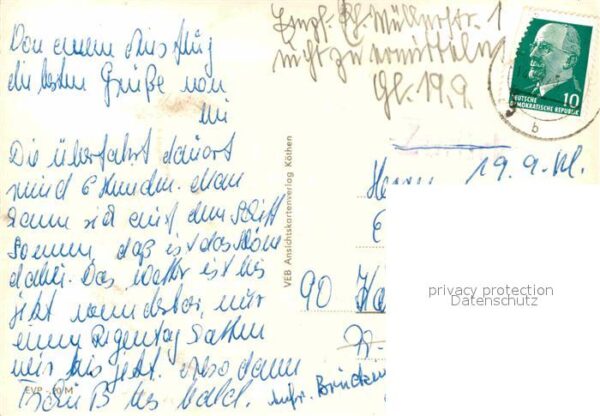 Von einem Ausflug
die besten Grüße von
Die Überfahrt dauert
rund 6 Stunden. Man
kann sich auf dem Schiff
sonnen, daß ist das Schöne
dabei. Das Wetter ist bis
jetzt wunderbar, nur
einen Regentag hatten
wir bis jetzt. Also dann
Tschüß bis bald.
EVP -,20 M
VEB Ansichtskartenverlag Köthen
Empf. Müllerstr. 1
nicht zu ermitteln
Gl. 19.9
DEUTSCHE
DEMOKRATISCHE REPUBLIK
10
b
19.9.
Herrn
6
90
privacy protection
Datenschutz